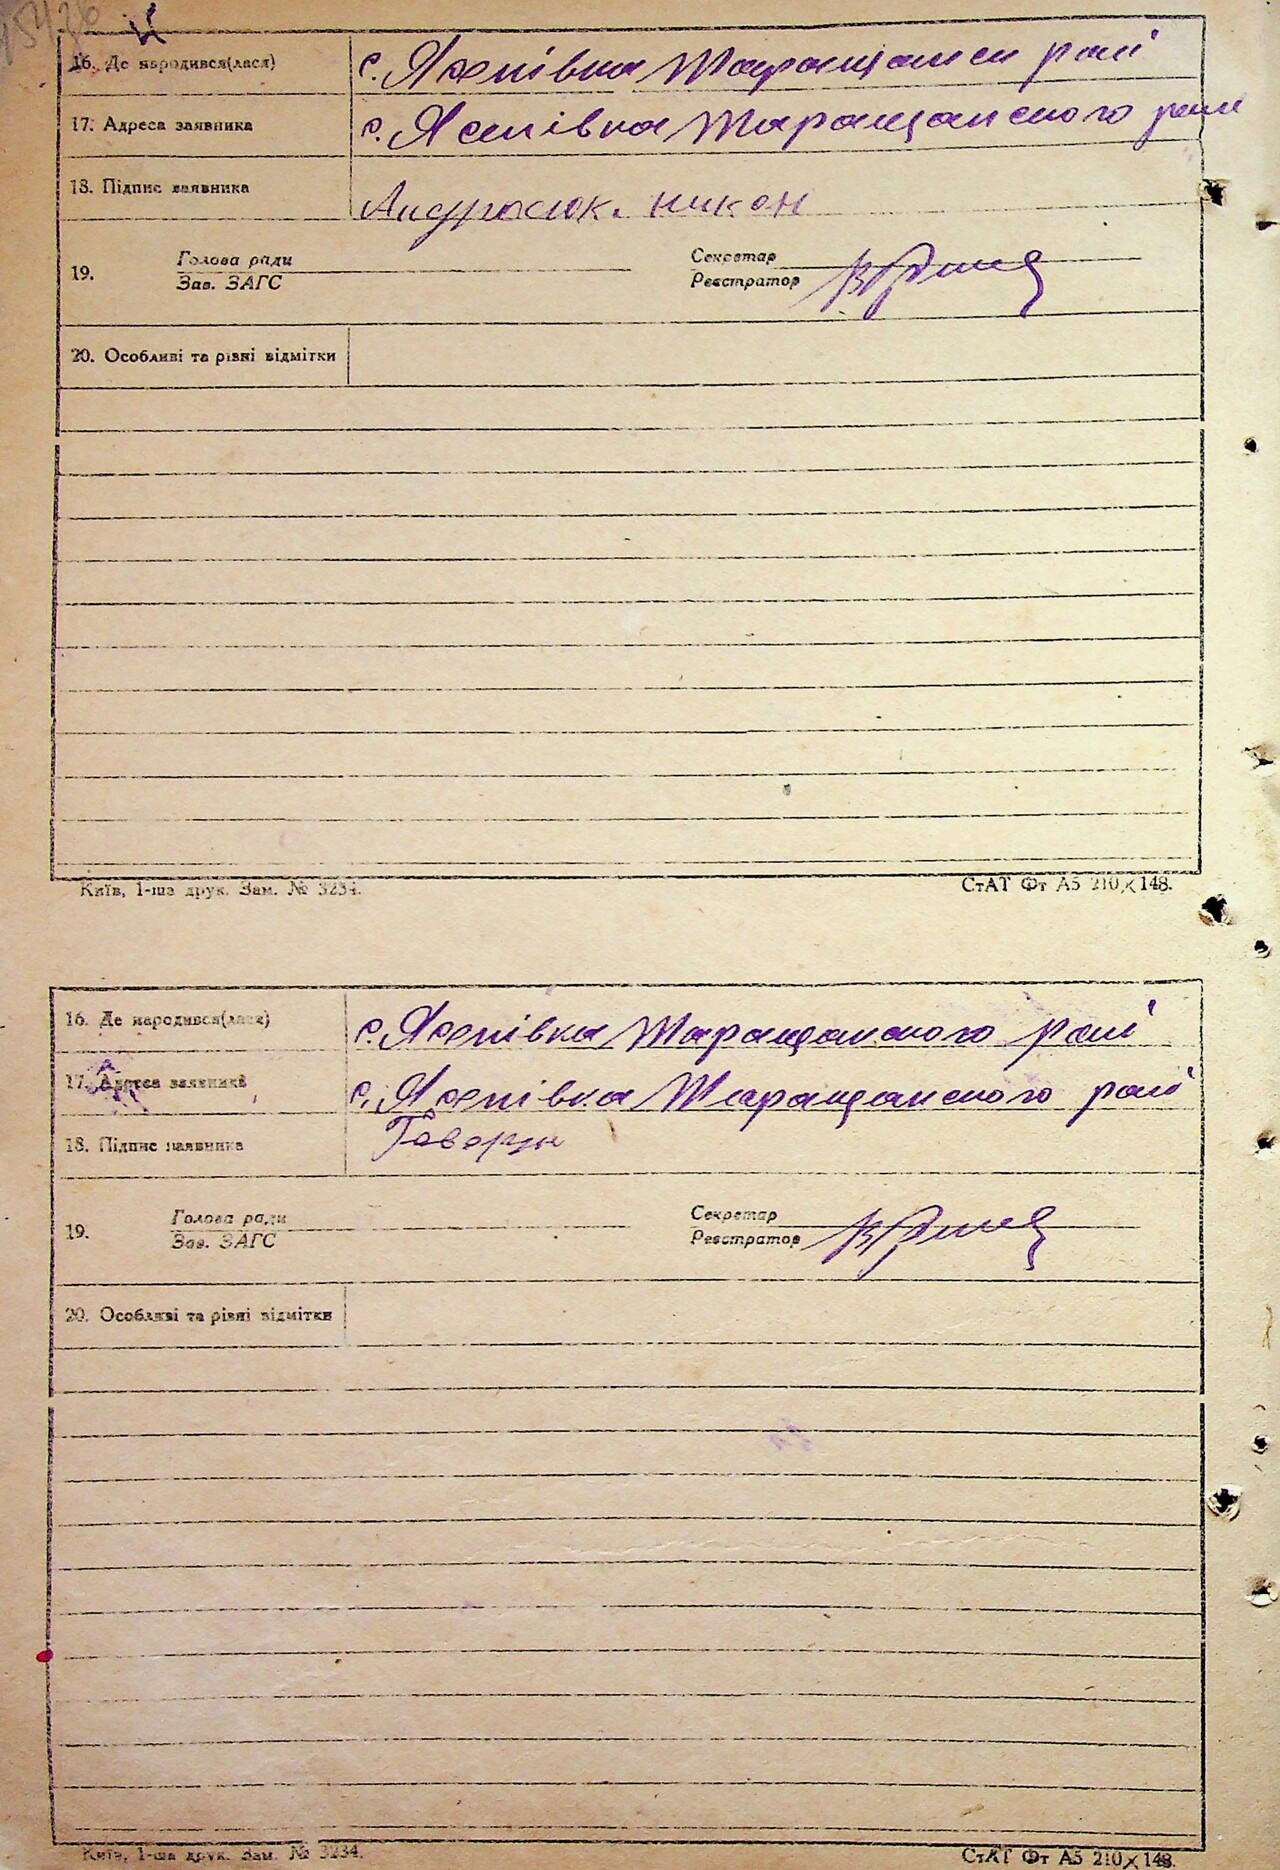 16. Де народився(лася) с. Лєнівка Таращанськ рай
17. Адреса заявника с. Лєнівка Таращанського рай
18. Підпис заявника Андросюк. никон
19. Голова ради Секретар
Зав. ЗАГС Реєстратор
20. Особливі та рівні відмітки
Київ, 1-ша друк. Зам. № 3234. СтАТ Фт А5 210×148.
16. Де народився(лася) с. Лєнівка Таращанського рай
17. Адреса заявника с. Лєнівка Таращанського рай
18. Підпис заявника Говорун
19. Голова ради Секретар
Зав. ЗАГС Реєстратор
20. Особливі та рівні відмітки
Київ, 1-ша друк. Зам. № 3234. СтАТ Фт А5 210×148.